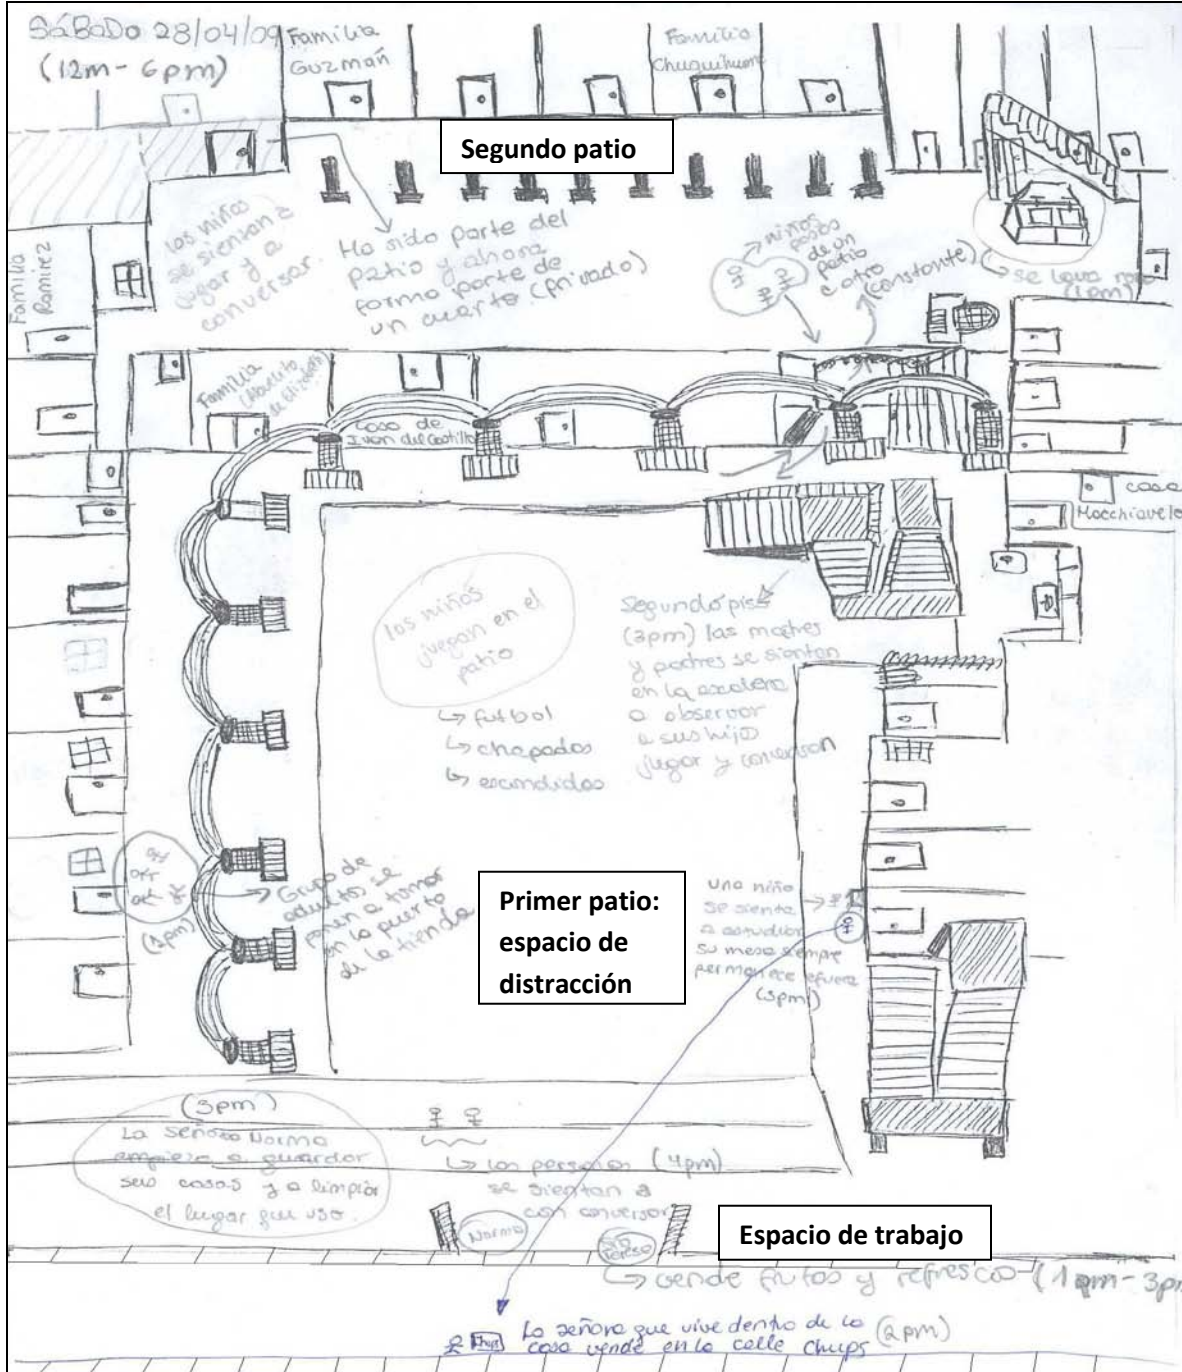 SÁBADO 28/04/09
(12m - 6pm)
Familia
Guzmán
Familia
Segundo patio
Familia
Ramirez
los niños
se sientan a
jugar y a
conversar.
Ha sido parte del
patio y ahora
forma parte de
un cuarto. (privado)
niños
de un
patio
a otro
(constante)
se lava ropa
(1pm)
Familia
Casa de
Juan del Castillo
casa
Macchiavelo
los niños
juegan en el
patio
↳ futbol
↳ chapados
↳ escondidos
Segundo piso
(3pm) las madres
y padres se sientan
en la escalera
a observar
a sus hijos
jugar y conversan
(1pm)
Grupo de
adultos se
ponen a tomar
en la puerta
de la tienda
Primer patio:
espacio de
distracción
una niña
se sienta
a estudiar
su mesa siempre
permanece afuera
(3pm)
(3pm)
La señora Norma
empieza a guardar
sus cosas y a limpiar
el lugar que uso.
↳ las personas (4pm)
se sientan a
con conversar
Norma
Espacio de trabajo
↳ vende frutas y refrescos (1pm - 3pm
La señora que vive dentro de la (2pm)
casa vende en la calle chups